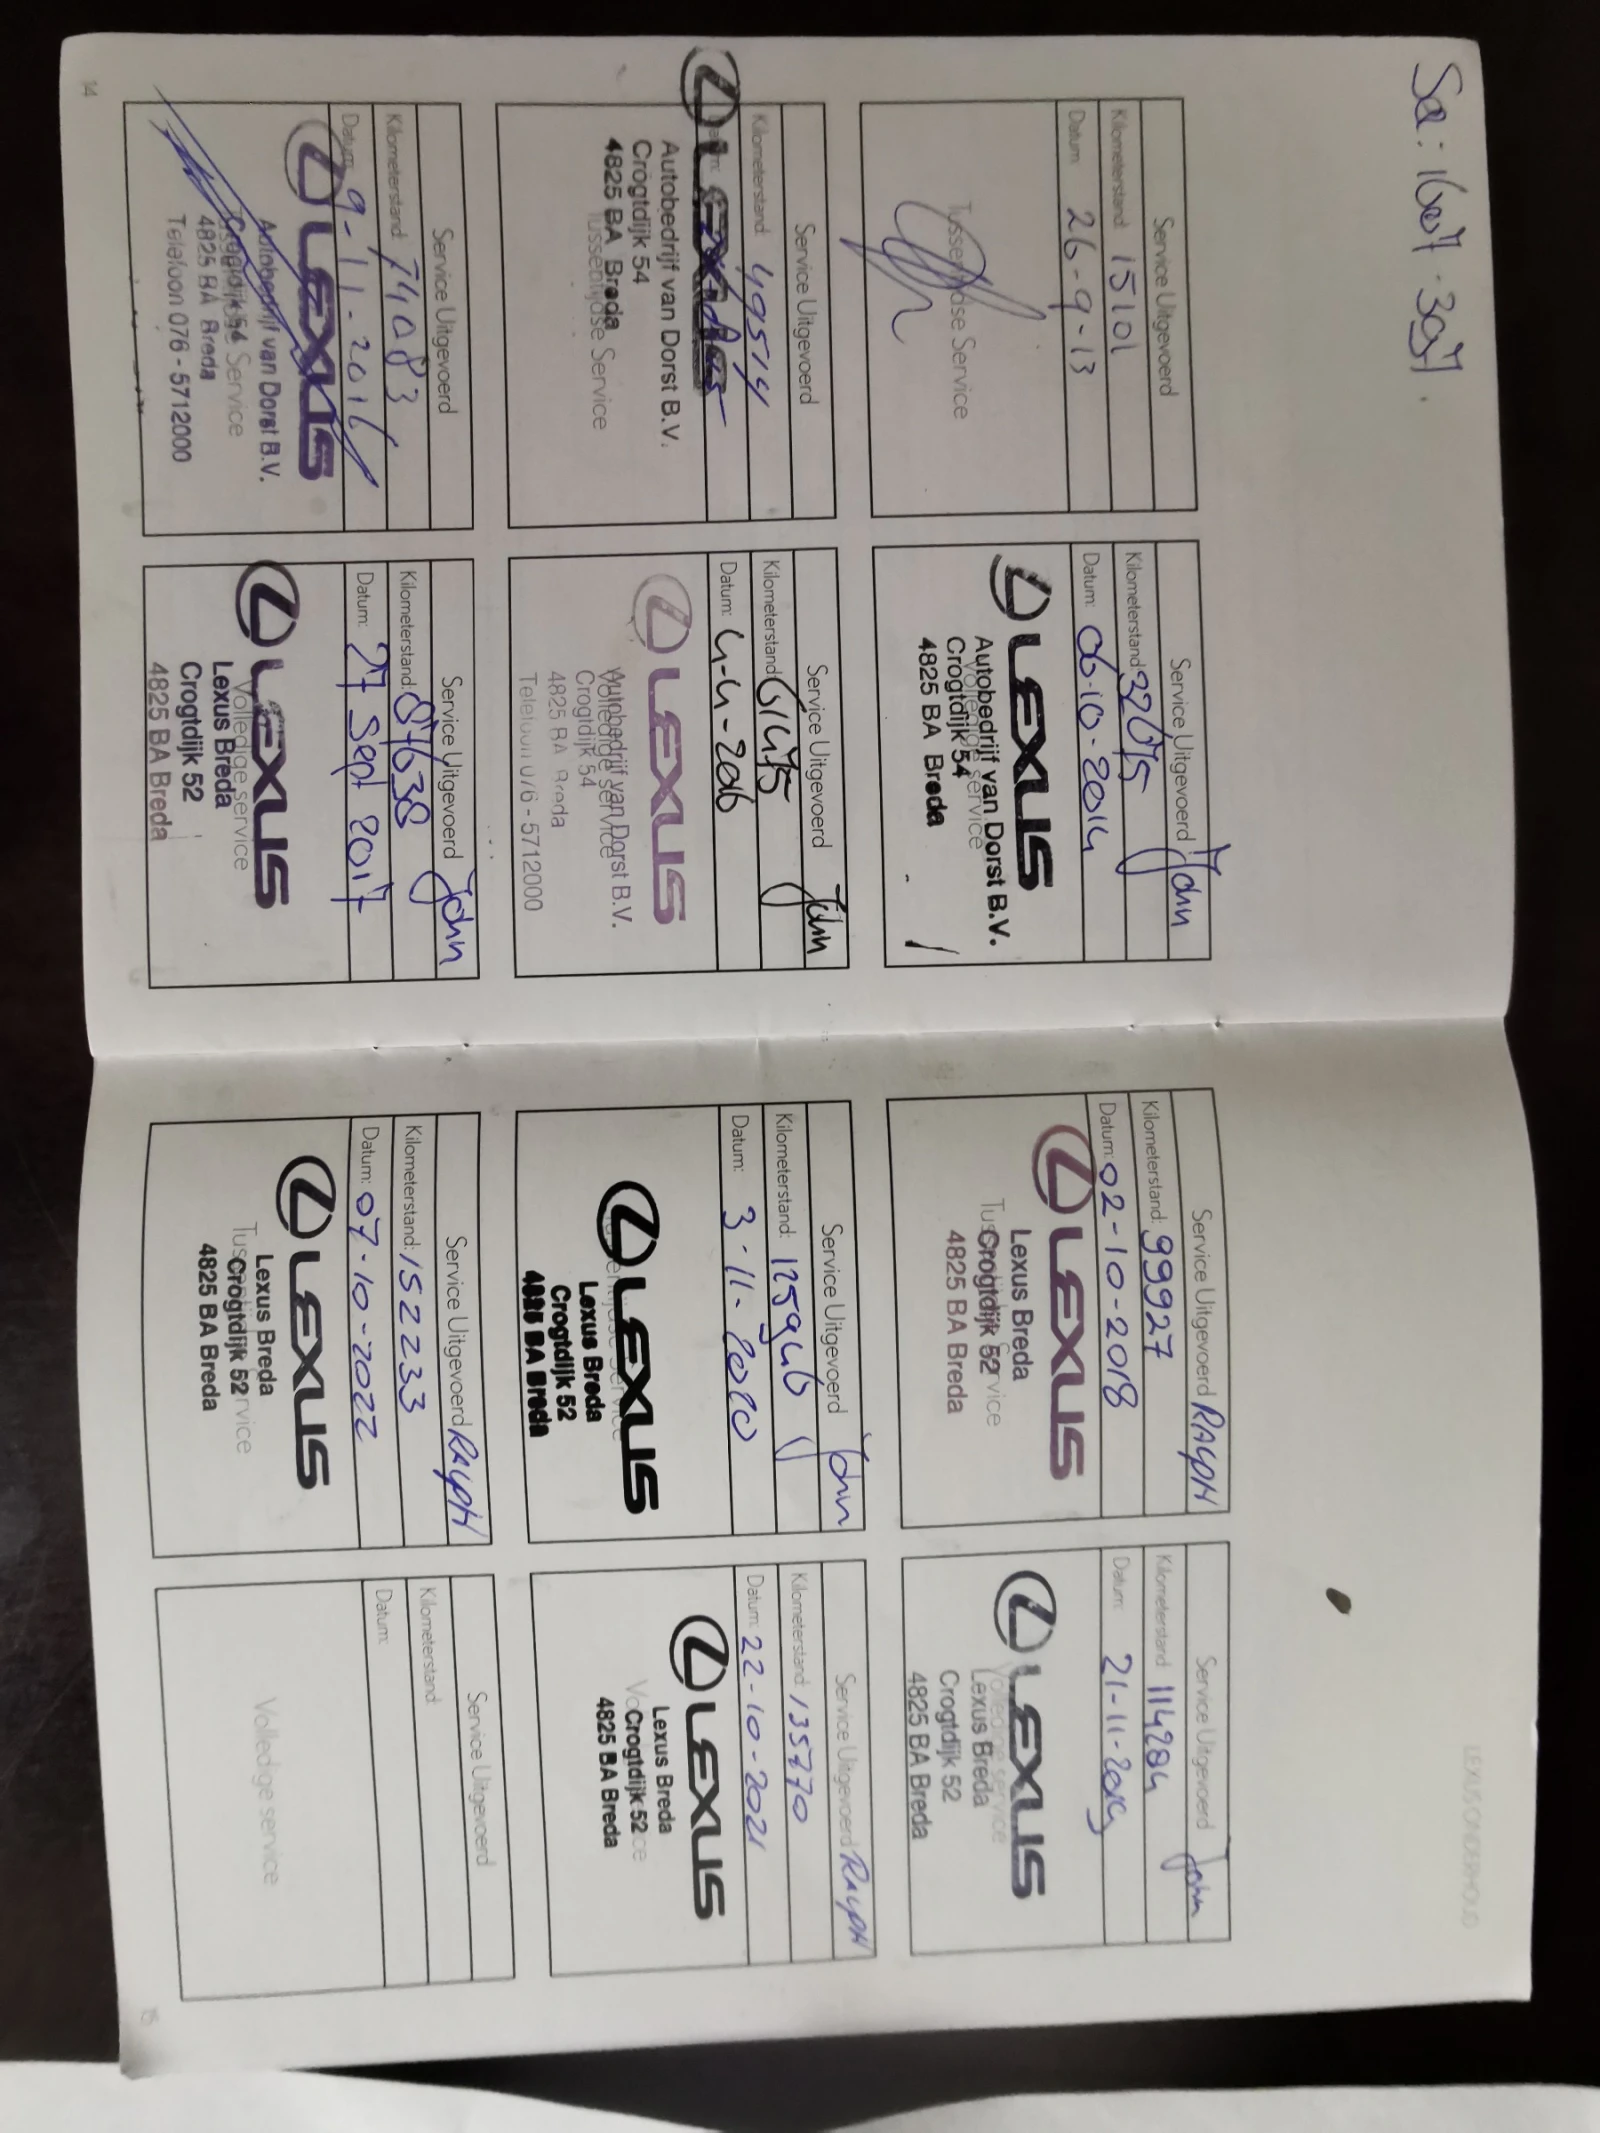 LEXUS ONDERHOUD
Service Uitgevoerd
Kilometerstand: 15101
Datum: 26-9-13
Tussentijdse Service
Service Uitgevoerd John
Kilometerstand: 32075
Datum: 06-10-2014
Volledige service
LEXUS
Autobedrijf van Dorst B.V.
Crogtdijk 54
4825 BA Breda
Service Uitgevoerd
Kilometerstand: 49514
Datum:
Tussentijdse Service
LEXUS
Autobedrijf van Dorst B.V.
Crogtdijk 54
4825 BA Breda
Service Uitgevoerd John
Kilometerstand: 61475
Datum: 4-4-2016
Volledige service
LEXUS
Autobedrijf van Dorst B.V.
Crogtdijk 54
4825 BA Breda
Telefoon 076 - 5712000
Service Uitgevoerd
Kilometerstand: 74083
Datum: 9-11-2016
Tussentijdse Service
LEXUS
Autobedrijf van Dorst B.V.
Crogtdijk 54
4825 BA Breda
Telefoon 076 - 5712000
Service Uitgevoerd John
Kilometerstand: 87638
Datum: 27 Sept 2017
Volledige service
LEXUS
Lexus Breda
Crogtdijk 52
4825 BA Breda
14
Service Uitgevoerd RALPH
Kilometerstand: 99927
Datum: 02-10-2018
Tussentijdse Service
LEXUS
Lexus Breda
Crogtdijk 52
4825 BA Breda
Service Uitgevoerd John
Kilometerstand: 114284
Datum: 21-11-2019
Volledige service
LEXUS
Lexus Breda
Crogtdijk 52
4825 BA Breda
Service Uitgevoerd John
Kilometerstand: 125946
Datum: 3-11-2020
Tussentijdse Service
LEXUS
Lexus Breda
Crogtdijk 52
4825 BA Breda
Service Uitgevoerd RALPH
Kilometerstand: 135770
Datum: 22-10-2021
Volledige service
LEXUS
Lexus Breda
Crogtdijk 52
4825 BA Breda
Service Uitgevoerd RALPH
Kilometerstand: 152233
Datum: 07-10-2022
Tussentijdse Service
LEXUS
Lexus Breda
Crogtdijk 52
4825 BA Breda
Service Uitgevoerd
Kilometerstand:
Datum:
Volledige service
15